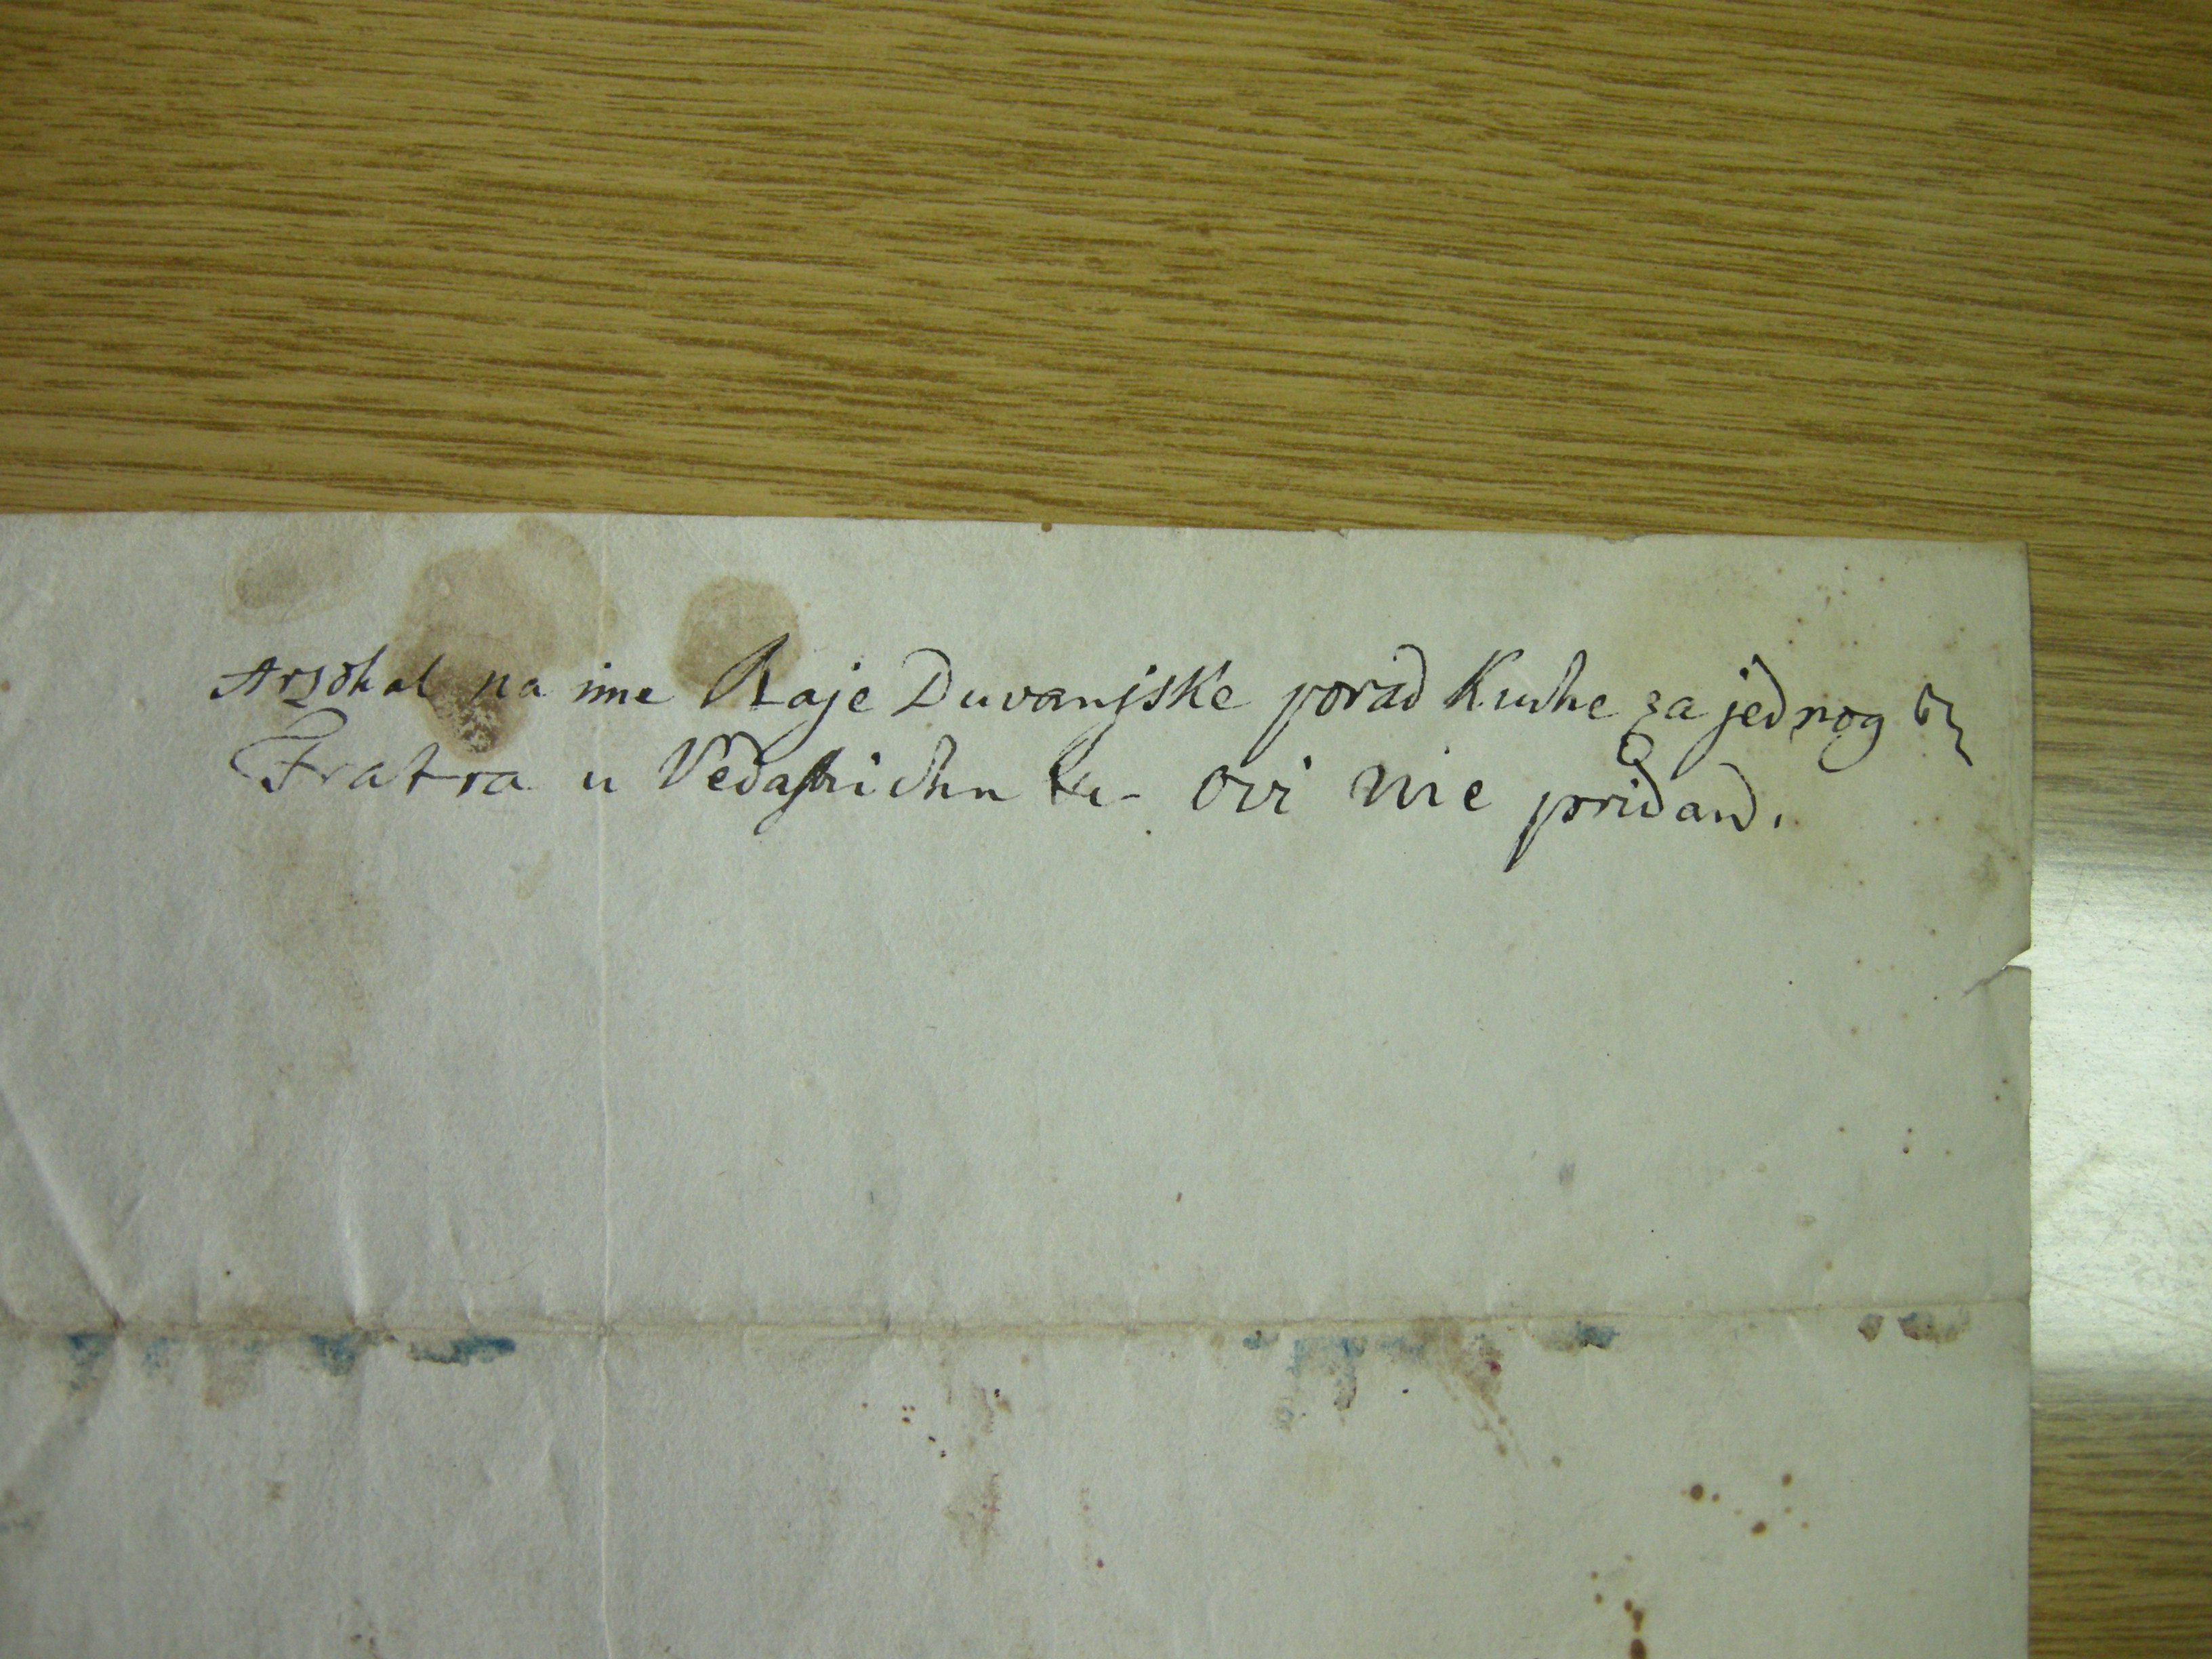 Arzohal na ime Raje Duvanjske porad Kuche za jednog
Fratra u Vedashichu ovi nie pridan.